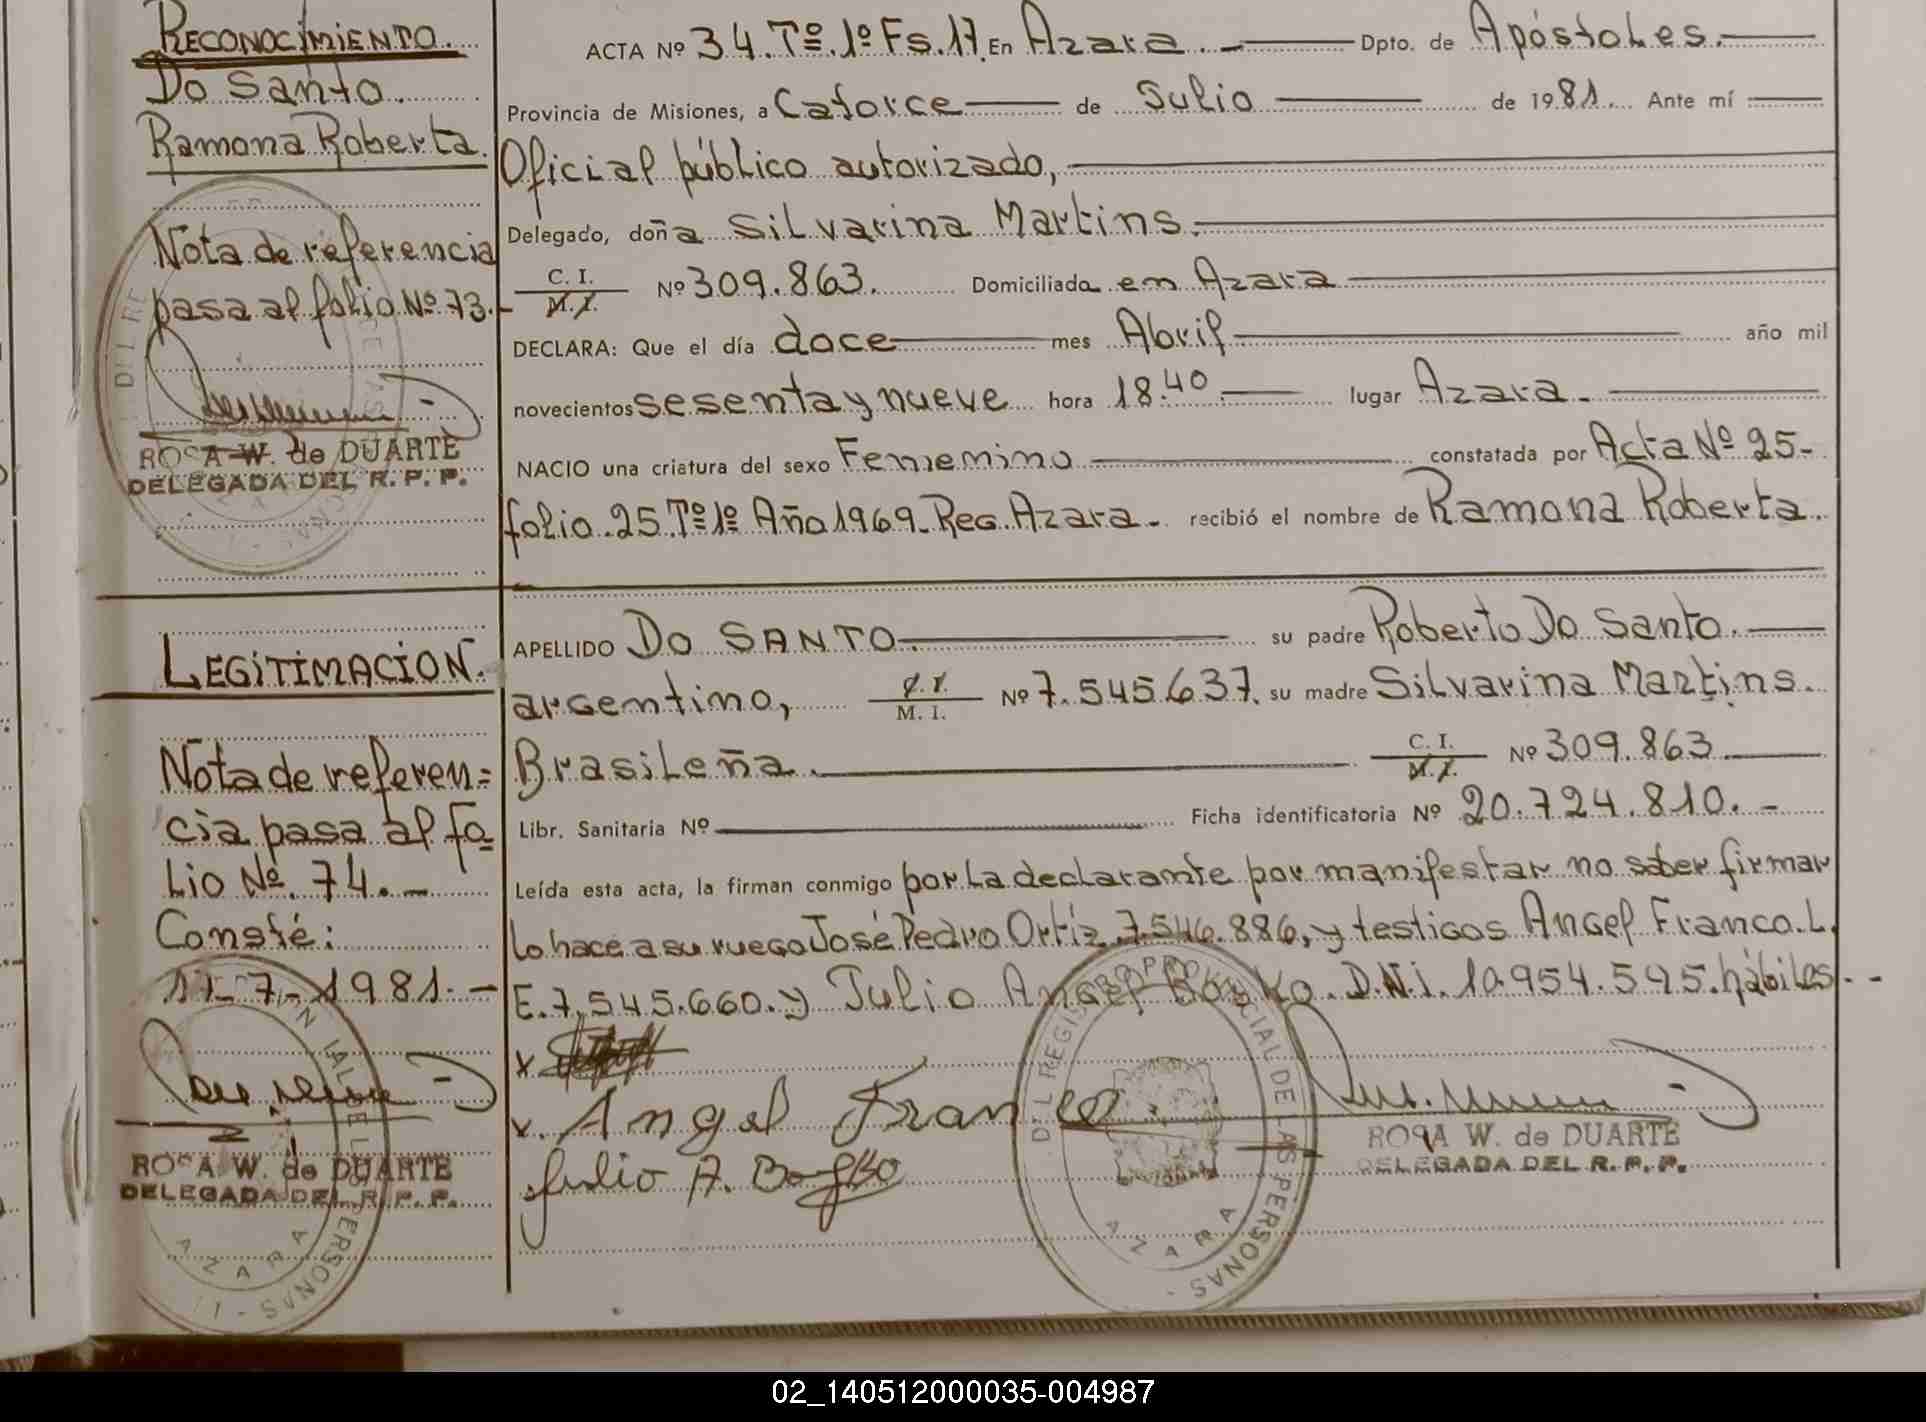 RECONOCIMIENTO.
Do Santo.
Ramona Roberta.
Nota de referencia
pasa al folio Nº 73.-
ROSA W. de DUARTE
DELEGADA DEL R. P. P.
ACTA Nº 34. Tº. 1º Fs. 17. En Azara. - Dpto. de Apóstoles.
Provincia de Misiones, a Catorce de Julio de 1981. Ante mí
Oficial público autorizado,
Delegado, doña Silvarina Martins.
C. I.
M. I. Nº 309.863. Domiciliada en Azara
DECLARA: Que el día doce mes Abril año mil
novecientos sesenta y nueve hora 18.40 lugar Azara.
NACIO una criatura del sexo Femenino constatada por Acta Nº 25-
folio 25 Tº 1º Año 1969- Reg. Azara- recibió el nombre de Ramona Roberta.
LEGITIMACION.
Nota de referen=
cia pasa al fo
lio Nº. 74. -
Consté:
17-7-1981. -
ROSA W. de DUARTE
DELEGADA DEL R. P. P.
APELLIDO DO SANTO. su padre Roberto Do Santo.
argentino, C. I.
M. I. Nº 7.545.637. su madre Silvarina Martins.
Brasileña. C. I.
M. I. Nº 309.863
Libr. Sanitaria Nº Ficha identificatoria Nº 20.724.810. -
Leída esta acta, la firman conmigo por la declarante por manifestar no saber firmar
lo hace a su ruego José Pedro Ortíz 7.546.886, y testigos Angel Franco. L.
E. 7.545.660. y Julio Angel D.N.I. 10.954.595. hábiles. - -
x
x. Angel Franco
Julio A.
DEL REGISTRO PROVINCIAL DE LAS PERSONAS -
AZARA
ROSA W. de DUARTE
DELEGADA DEL R. P. P.
02_140512000035-004987